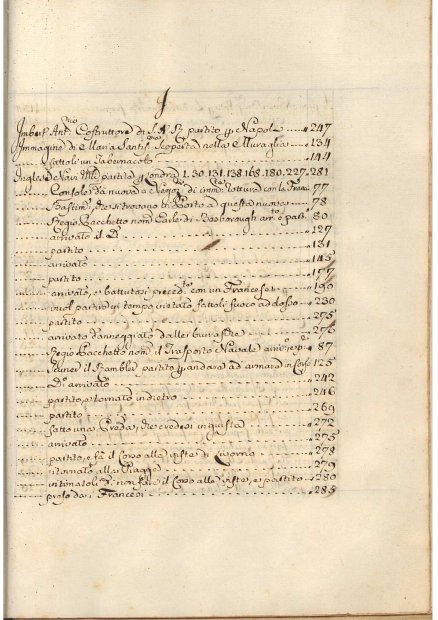 I
Imbert Ant.nio Costruttore di S. A. S. partito p Napoli ...... 247
Immagine di Maria Santis.ma Scoperta nella Muraglia ...... 134
...... fattoli un Tabernacolo ...... 144
Inglese Navi partite p Londra 1. 30. 131. 138. 168. 180. 227. 281
...... Console da nuova a Negoz.ti di imm.te rottura con la Francia 77
...... Bastim.ti che si trovano in Porto a questa nuova ...... 78
...... Regio Pacchetto nom. Earle di Besborough arr.to e part. 80
...... arrivato il D. ...... 127
...... partito ...... 131
...... arrivato ...... 145
...... partito ...... 177
...... arrivato, e battutosi preced.te con un Francese ...... 190
...... vuol partire in tempo vietato fattoli fuoco addosso ...... 230
...... partito ...... 275
...... arrivato danneggiato dalle burrasche ...... 276
...... Regio Pacchetto nom. il Trasporto Navale arriv. e part. 87
...... il Rambler partito p andare ad armare in Corso 125
...... d.o arrivato ...... 242
...... partito, e tornato indietro ...... 246
...... partito ...... 269
...... fatto una Preda, che credesi ingiusta ...... 272
...... arrivato ...... 275
...... partito, e fà il Corso alla vista di Livorno ...... 278
...... ritornato alla Piaggia ...... 279
...... intimatoli di non fare il Corso alla vista, e partito ...... 280
...... preso da i Francesi ...... 285